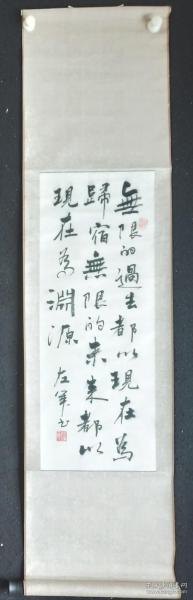 無限的過去都以現在為
歸宿無限的未来都以
現在為淵源
左军书